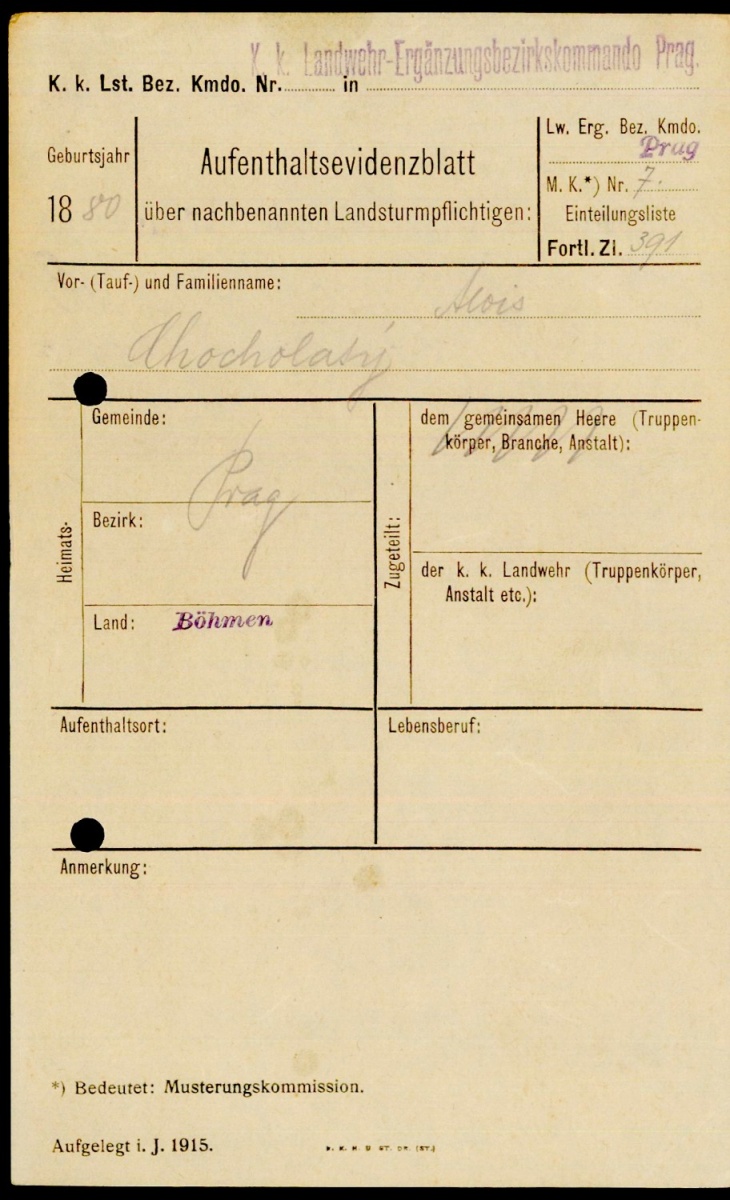 K. k. Landwehr-Ergänzungsbezirkskommando Prag.
K. k. Lst. Bez. Kmdo. Nr. in
Geburtsjahr
18 80
Aufenthaltsevidenzblatt
über nachbenannten Landsturmpflichtigen:
Lw. Erg. Bez. Kmdo.
Prag
M. K.*) Nr. 7.
Einteilungsliste
Fortl. Zl. 391
Vor- (Tauf-) und Familienname:
Alois
Chocholatý
Heimats-
Gemeinde:
Prag
Bezirk:
Land: Böhmen
Zugeteilt:
dem gemeinsamen Heere (Truppen-
körper, Branche, Anstalt):
der k. k. Landwehr (Truppenkörper,
Anstalt etc.):
Aufenthaltsort:
Lebensberuf:
Anmerkung:
*) Bedeutet: Musterungskommission.
Aufgelegt i. J. 1915.